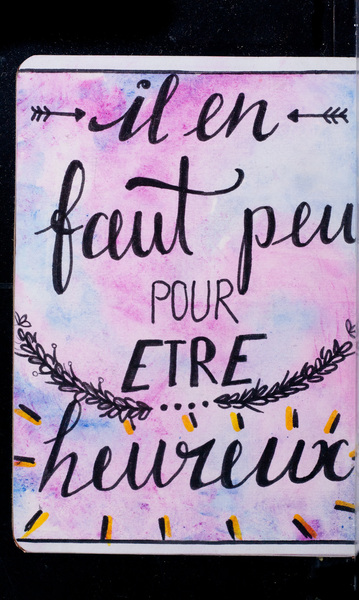 il en
faut peu
POUR
ETRE
heureux